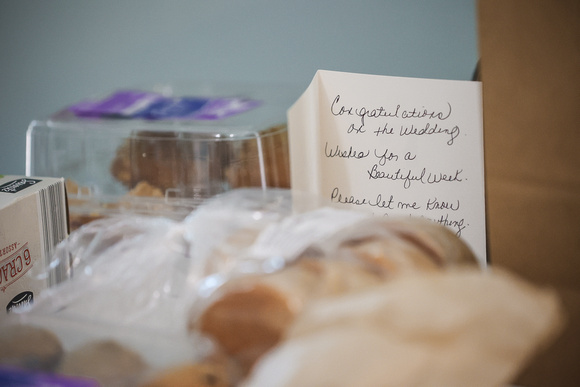 Congratulations
on the Wedding.
Wishes for a
Beautiful Week.
Please let me know
6 CRA
ASSORT